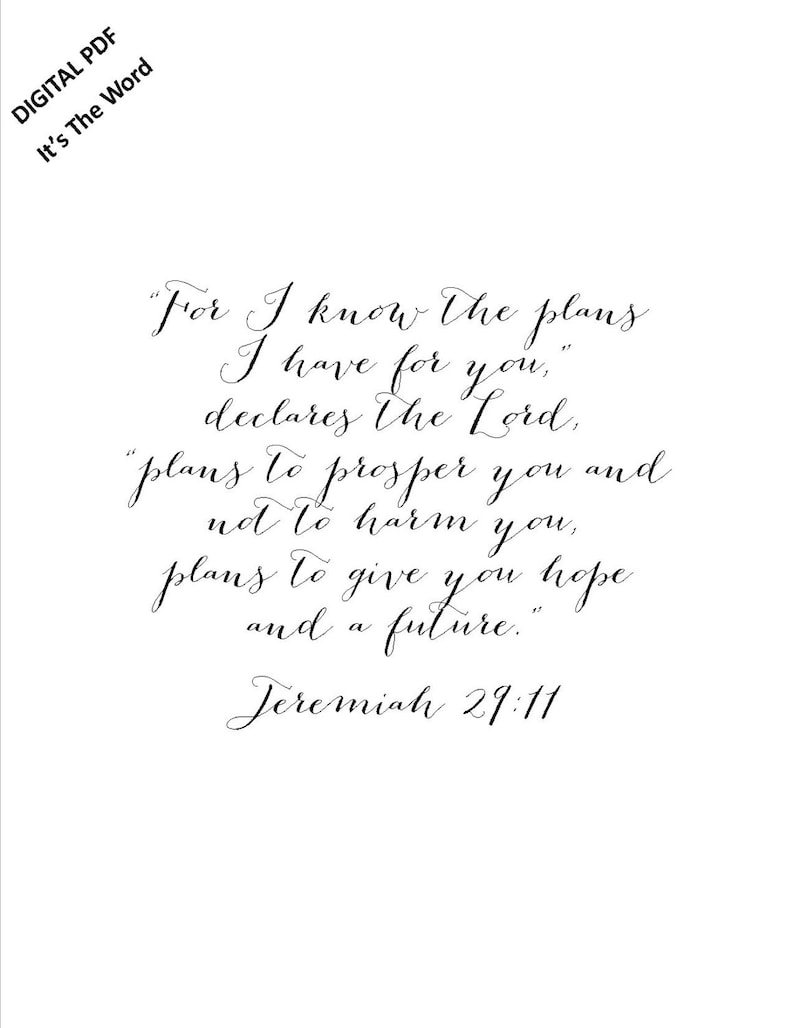 DIGITAL PDF
It's The Word
“For I know the plans
I have for you,”
declares the Lord,
“plans to prosper you and
not to harm you,
plans to give you hope
and a future.”
Jeremiah 29:11